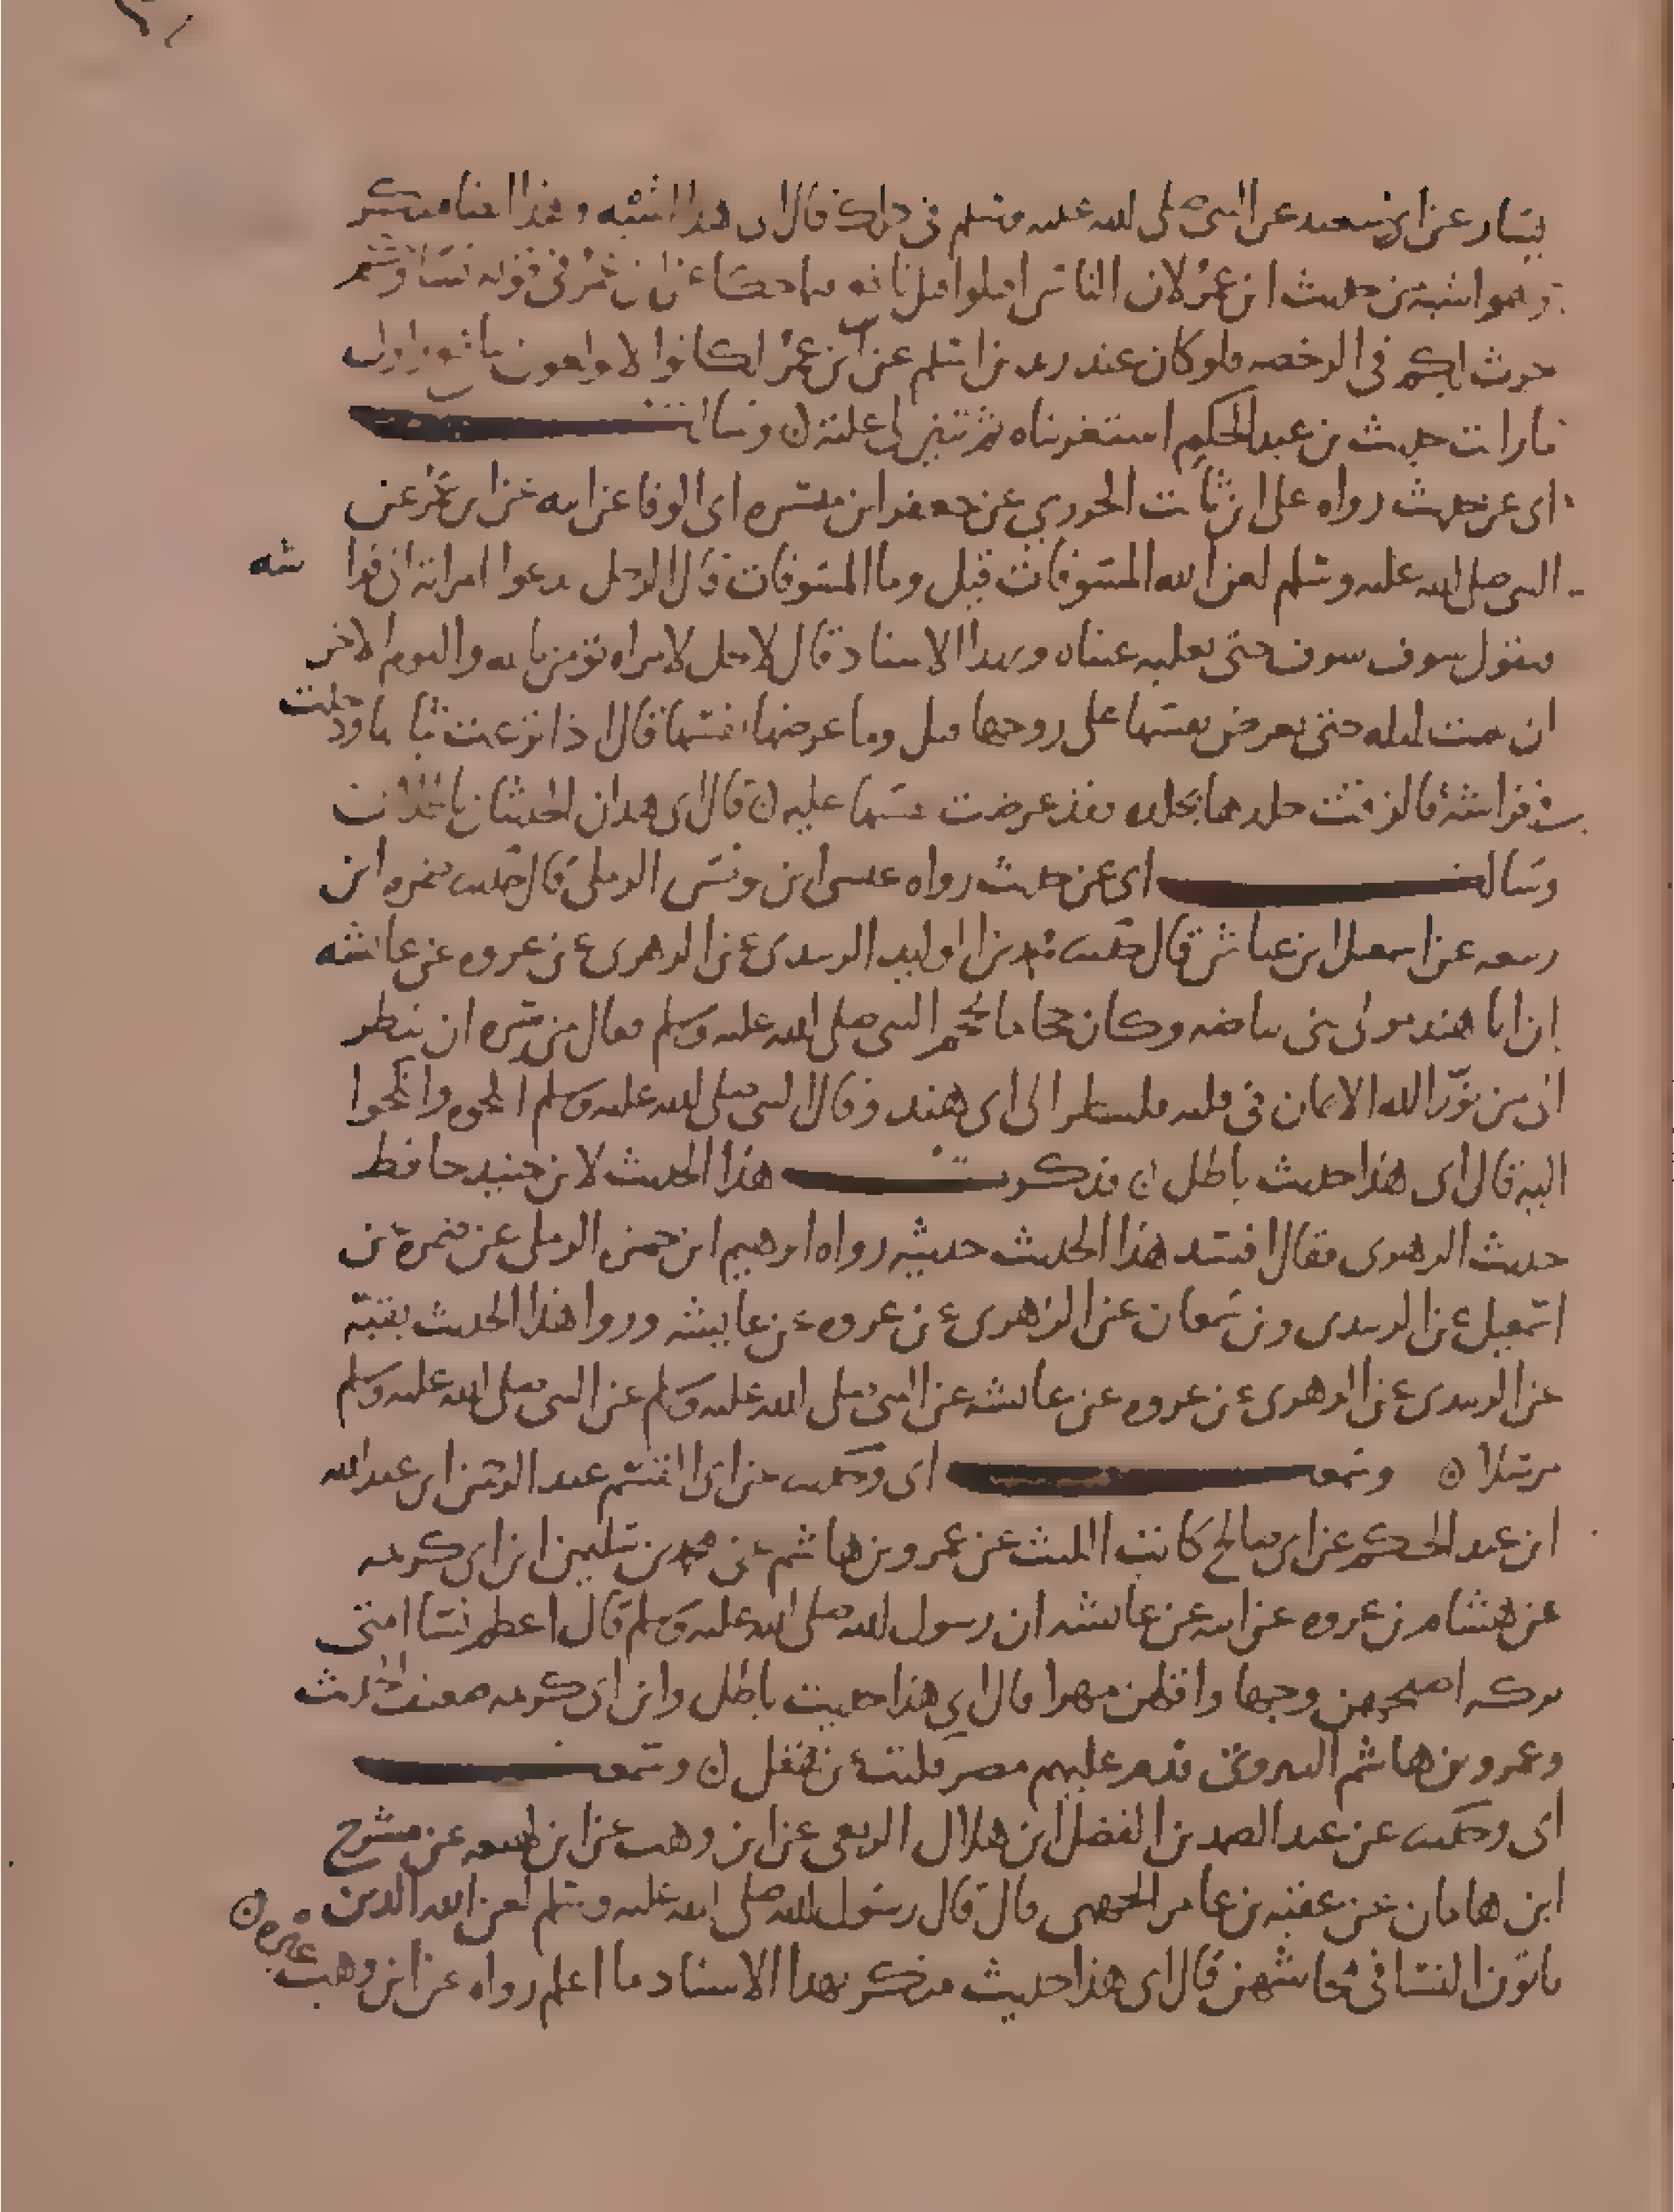 يسار عن ابي سعيد عن النبي صلى الله عليه وسلم في ذلك قال ابي هذا اشبه وهذا ايضا منكر
وهو اشبه من حديث ابن عمر لان الناس اقبلوا قبل نافع فيما حكا عن ابن عمر في قوله نساوكم
حرث لكم في الرخصه فلو كان عند زيد بن اسلم عن ابن عمر لكانوا لا يولعون بنافع واول
ما رايت حديث بن عبد الحكم استغربناه ثم تبين لي علته ن وسالت
ابي عن حديث رواه علي ابن ثابت الجزري عن جعفر ابن ميسره ابي الوفا عن ابيه عن ابن عمر عن
النبي صلى الله عليه وسلم لعن الله المسوفات قيل وما المسوفات قال الرجل يدعوا امراته ان فراشه
فيقول سوف سوف حتى تغلبه عيناه وبهذا الاسناد قال لا يحل لامراه تؤمن بالله واليوم الاخر
ان تبيت ليله حتى تعرض نفسها على زوجها قيل وما عرضها نفسها قال اذا نزعت ثيابها ودخلت
في فراشه فالزقت جلدها بجلده فقد عرضت نفسها عليه ن قال ابي هذان الحديثان باطلان
وسالت ابي عن حديث رواه عيسى ابن يونس الرملي قال حدثنا ضمره ابن
ربيعه عن اسمعيل ابن عياش قال حدثنا محمد بن الوليد الزبيدي عن الزهري عن عروه عن عائشه
ان ابا هند مولى بني بياضه وكان حجاما يحجم النبي صلى الله عليه وسلم فقال من سره ان ينظر
الى من نور الله الايمان في قلبه فلينظر الى ابي هند وقال النبي صلى الله عليه وسلم انكحوه وانكحوا
اليه قال ابي هذا حديث باطل ن فذكرت هذا الحديث لابن جنيد حافظ
حديث الزهري فقال افسد هذا الحديث حديثه رواه ابرهيم ابن حمزه الرملي عن ضمرة عن
اسمعيل عن الزبيدي وبن سمعان عن الزهري عن عروه عن عايشه ورووا هذا الحديث بقية
عن الزبيدي عن الزهري عن عروه عن عائشه عن النبي صلى الله عليه وسلم عن النبي صلى الله عليه وسلم
مرسلا ن وسمعت ابي وحدثنا عن ابي القسم عبد الرحمن ابن عبد الله
ابن عبد الحكم عن ابي صالح كاتب الليث عن عمرو بن هاشم عن محمد بن سليمن ابن ابي كريمه
عن هشام بن عروه عن ابيه عن عائشه ان رسول الله صلى الله عليه وسلم قال اعظم نسا امتي
بركه اصبحهن وجها واقلهن مهرا قال ابي هذا حديث باطل وابن ابي كريمه ضعيف الحديث
وعمرو بن هاشم البيروتي قدم عليهم مصر فلينه بن نفيل ن وسمعت
ابي وحدثنا عن عبد الصمد بن الفضل ابن هلال الربعي عن ابن وهب عن ابن لهيعه عن مشرح
ابن هاعان عن عقبه بن عامر الجهني قال قال رسول الله صلى الله عليه وسلم لعن الله الذين
ياتون النسا في محاشهن قال ابي هذا حديث منكر بهذا الاسناد ما اعلم رواه عن ابن وهب غيره ن